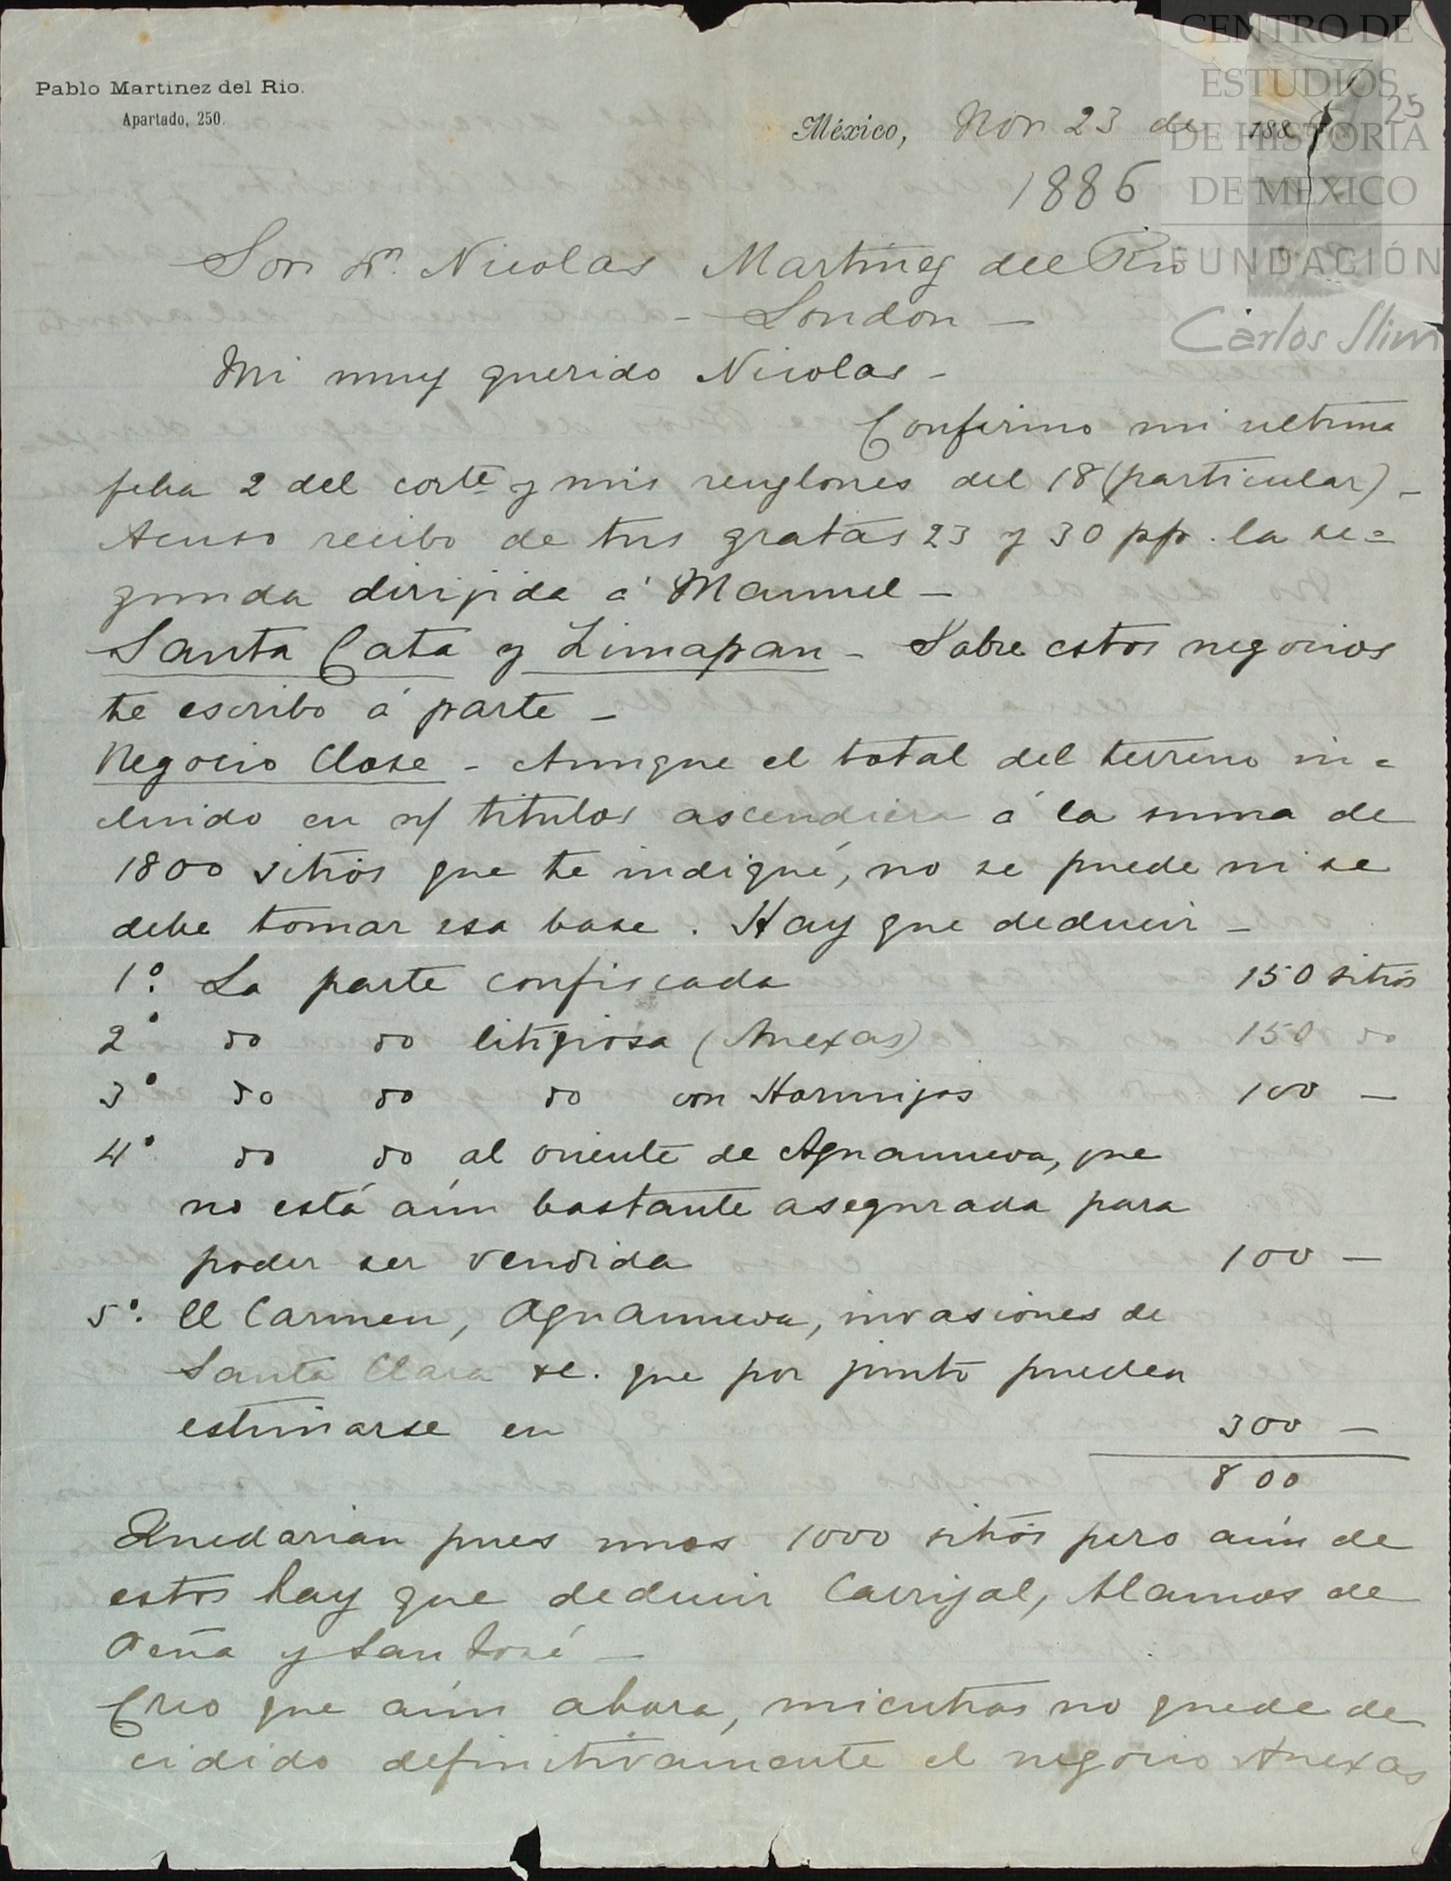 Pablo Martinez del Rio.
Apartado, 250.
CENTRO DE
ESTUDIOS
DE HISTORIA
DE MÉXICO
FUNDACIÓN
Carlos Slim
25
México, Nov 23 de 188
1886
Sor Dn. Nicolas Martinez del Rio
- London -
Mi muy querido Nicolas -
Confirmo mi ultima
fecha 2 del corte y mis renglones del 18 (particular) -
Acuso recibo de tus gratas 23 y 30 pp. la se=
gunda dirijida á Manuel -
Santa Cata y Zimapan - Sobre estos negocios
te escribo á parte -
Negocio Close - Aunque el total del terreno in=
cluido en n/ titulos ascendiera á la suma de
1800 sitios que te indiqué, no se puede ni se
debe tomar esa base. Hay que deducir -
1º. La parte confiscada 150 sitios
2º do do litigiosa (Anexas) 150 do
3º do do do con Hormigas 100 -
4º do do al oriente de Aguanueva, que
no está aún bastante asegurada para
poder ser vendida 100 -
5º. El Carmen, Aguanueva, invasiones de
Santa Clara &c. que por junto pueden
estimarse en 300 -
800
Quedarian pues unos 1000 sitios pero aún de
estos hay que deducir Carrizal, Alamos de
Peña y San José -
Creo que aún ahora, mientras no quede de
cidido definitivamente el negocio Anexas